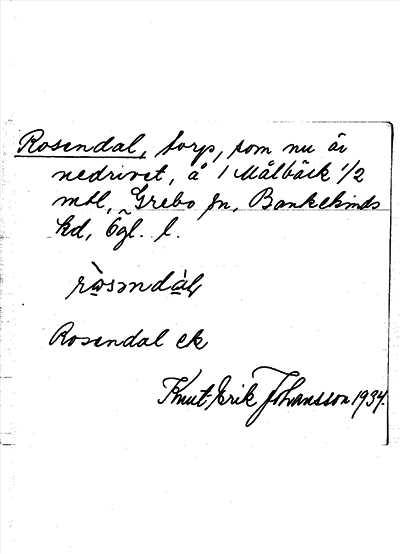 Rosendal, torp, som nu är
nedrivet, å 1 Målbäck 1/2
mtl, Grebo sn, Bankekinds
hd, Ögl. l.
ròsənda̱l
Rosendal ek
Knut-Erik Johansson 1934.